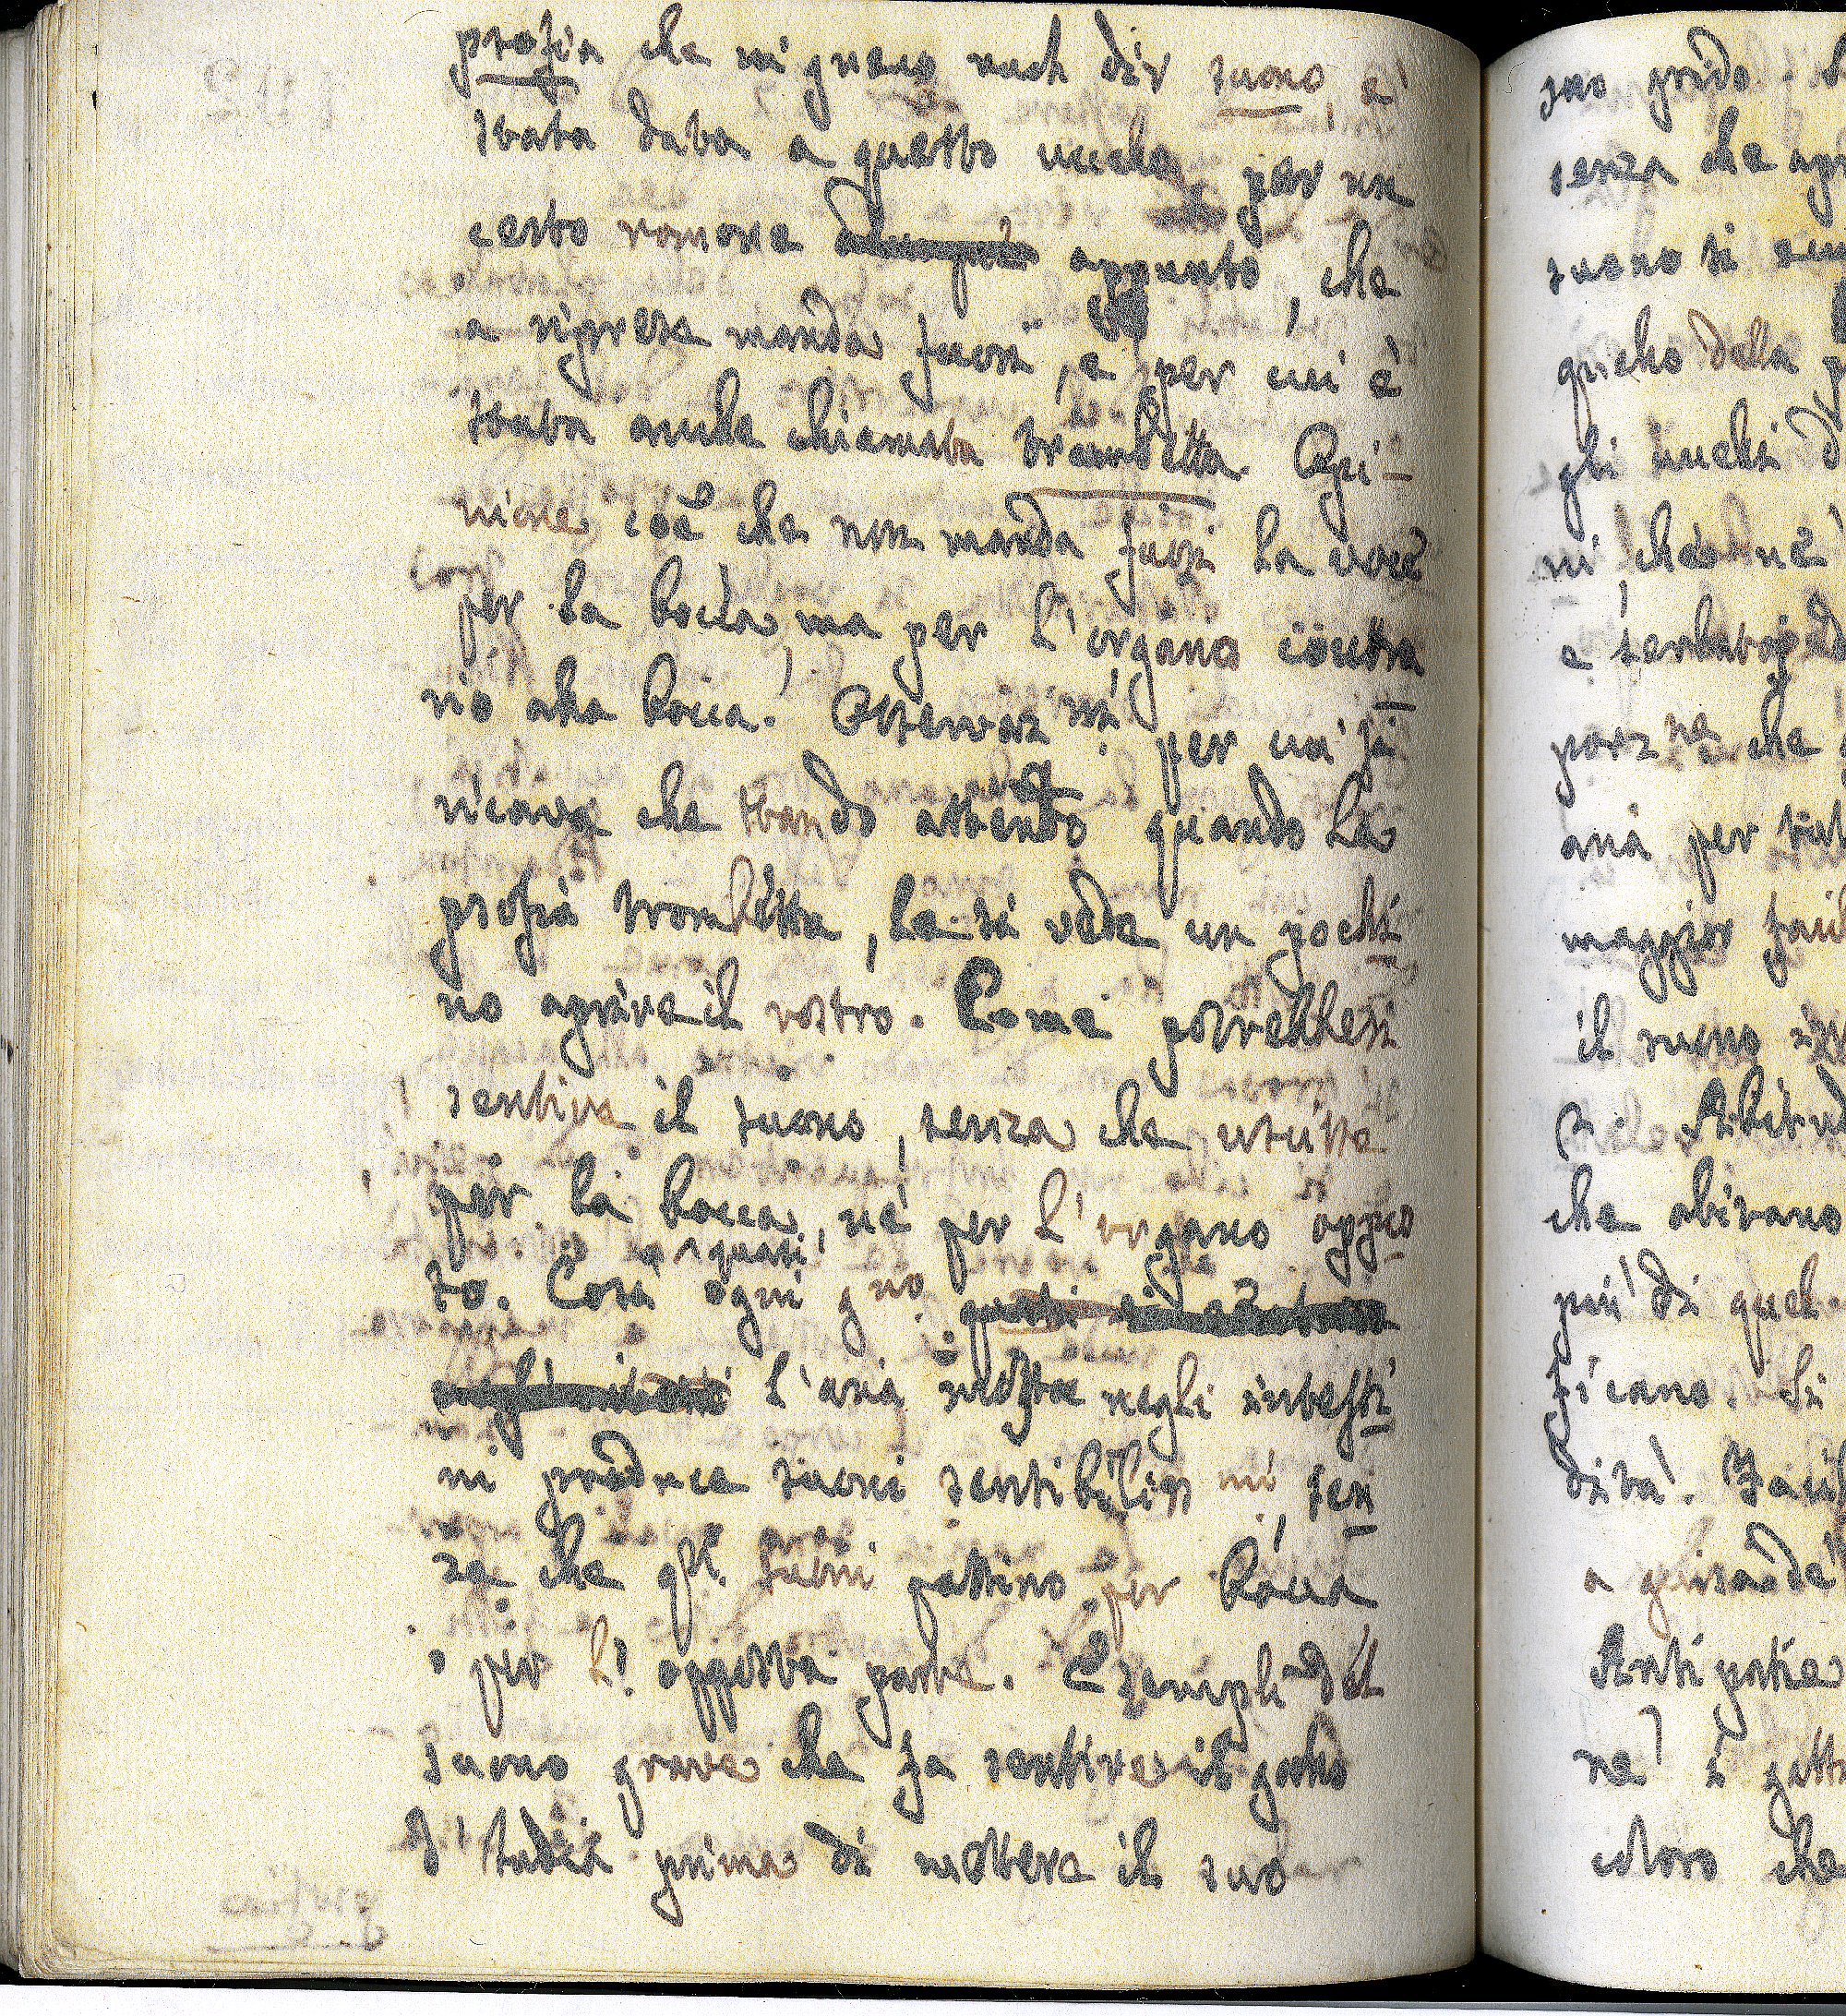 profia che in greco vuol dir suono, è
stata data a questo uccello per un
certo romore appunto, che
a ripresa manda fuori, e per cui è
stata anche chiamata trombetta. Opi-
nione cõe che non manda fuori la voce
per la bocca, ma per l'organo contra
rio alla bocca. Osservaz.ni per cui si
ricava che stando attento quando la
profia trombetta, la si vede un pochi
no aprire il rostro. Come potrebbesi
sentire il suono, senza che uscisse
per la bocca, né per l'organo oppo
sto. Così quasi ogni gno
l'aria mossa negli intesti
ni produce suoni sentibiliss.mi, sen
za che qti. suoni passino per bocca
o per l' opposta parte. Esempli del
suono grave che fa sentire il gallo
d'India prima di mettere il suo
suo grido.
senza che
suono si
della
gli uccelli
ni, che
e
che
aria per
maggior
il suono
che abitano
più di quel
ficano. Si
dità.
a guisa de
Antipatie
né i gatti
coloro che